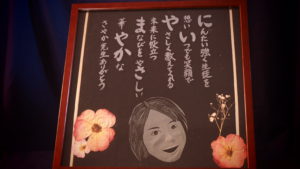 にんたい強く生徒を
想い いつでも笑顔で
やさしく教えてくれる
未来に役立つ
まなびをやさしい
華やかな
さやか先生ありがとう